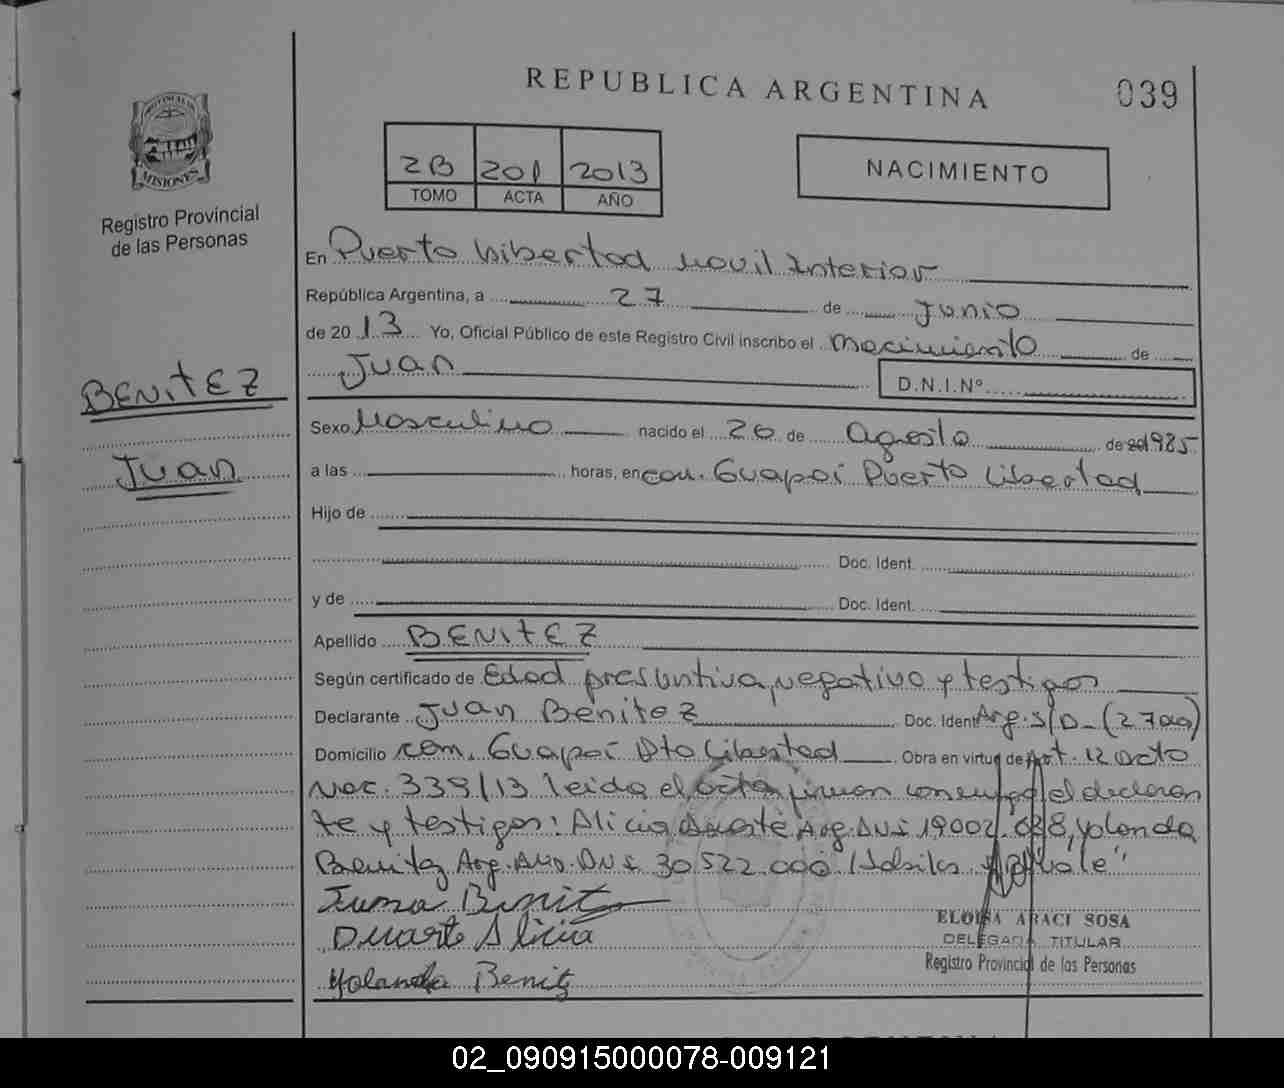 REPUBLICA ARGENTINA
039
PROVINCIA DE
MISIONES
Registro Provincial
de las Personas
2B 201 2013
TOMO ACTA AÑO
NACIMIENTO
En Puerto Libertad Movil Interior
República Argentina, a 27 de Junio
de 2013 Yo, Oficial Público de este Registro Civil inscribo el Nacimiento de
Juan
D.N.I.Nº
BENITEZ
Juan
Sexo Masculino nacido el 26 de Agosto de 1985
a las horas, en com. Guapoi Puerto Libertad
Hijo de
Doc. Ident.
y de Doc. Ident.
Apellido BENITEZ
Según certificado de Edad presuntiva, negativo y testigos
Declarante Juan Benitez Doc. Ident Arg. S/D - (27 años)
Domicilio com. Guapoi Pto Libertad Obra en virtud de Art. 12 acto
Nac. 339/13 leida el acta firman conmigo el declaran
te y testigos: Alicia Duarte Arg. DNI 19002.  , Yolanda
Benitez Arg. DNI 30.522.000 vale"
Juan Benitez
Duarte Alicia
Yolanda Benitez
ELOISA ARACI SOSA
DELEGADA TITULAR
Registro Provincial de las Personas
02_090915000078-009121